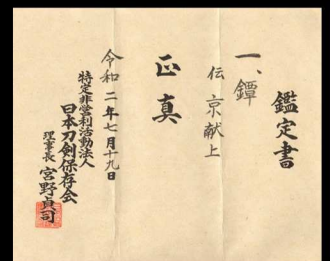 鑑定書
一、鐔
伝 京献上
正真
令和二年七月十九日
特定非営利活動法人
日本刀剣保存会
理事長 宮野貞司